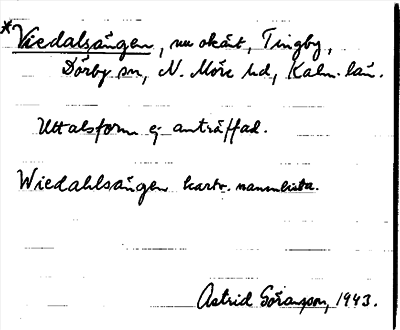 *Viedalsängen, nu okänt, Tingby,
Dörby sn, N. Möre hd, Kalm. län.
Uttalsform ej anträffad.
Wiedahlsängen kartv. namnlista.
Astrid Göransson, 1943.